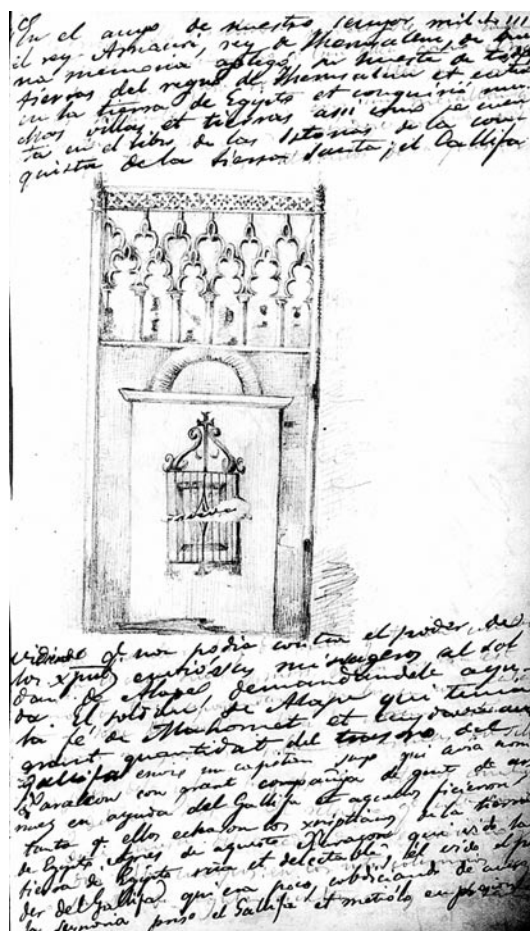 En el anyo de nuestro senyor mil
il rey Amaux, rey de Iherusalem de
na memoria aplegó su huesta de todas
tierras del regno de Iherusalem et entró
en la tierra de Egypto et conquirió mu
chas villas et tierras asi como se cuen
ta en el libro de las Istorias de la con
quista de la tierra santa; el Gallifa
vidiendo q. non podia contra el poder de
los xpnos envió sus misageros al sol
dan de Alapel, demandandole ayu
da. El soldan de Alape qui tenia
la fe de Mahomet et cuydava aver
grant quantidat del trasoro del
Gallifa envió un capitan suyo qui avia nom
Xaracon con grant compañia de gent de ar
mas en ayuda del Gallifa et aquellos fizieron
tanto q. ellos echaron los xristianos de la tierra
de Egypto. Apres de aquesto Xaracon qui vido la
tierra de Egypto rica et delectable, et vido el po
der del Gallifa qui era poco, cobdiciando de aver
la senyoria priso el Gallifa et metiólo en preson